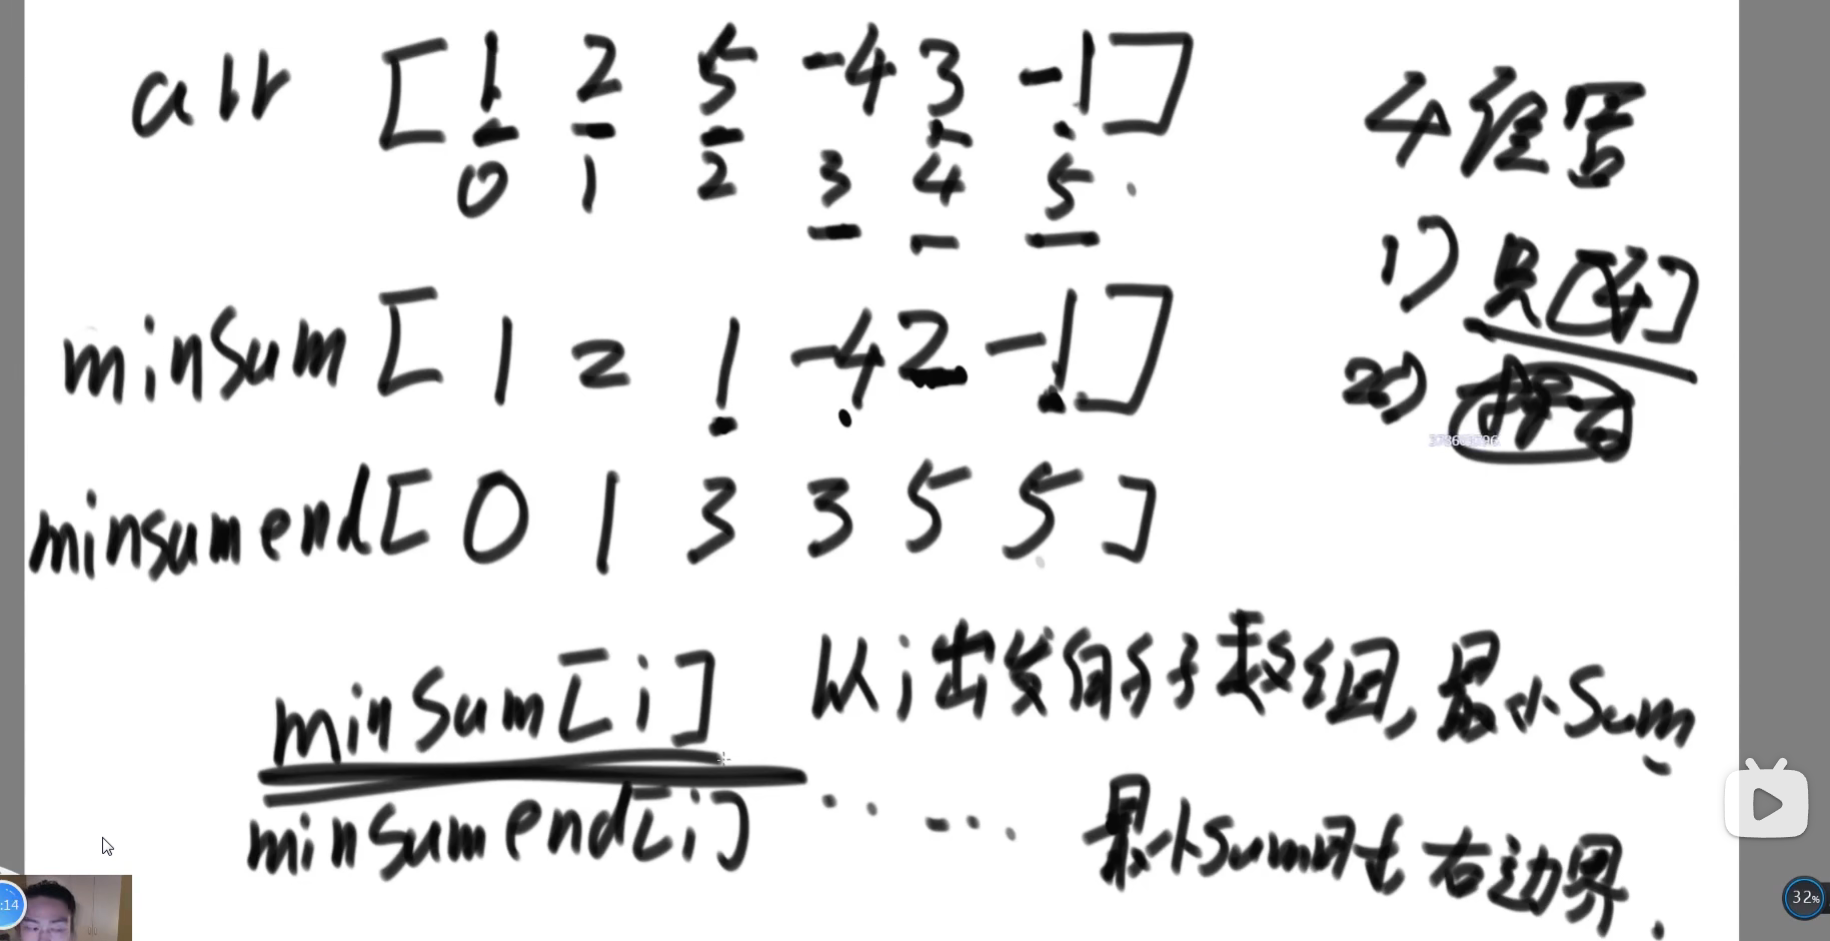 arr [ 1 2 5 -4 3 -1 ]
0 1 2 3 4 5
minsum [ 1 2 1 -4 2 -1 ]
minsumend [ 0 1 3 3 5 5 ]
minsum[i] 从i出发的子数组, 最小sum
minsumend[i] ...... 最小sum时右边界.
1)
2)
:14
32%